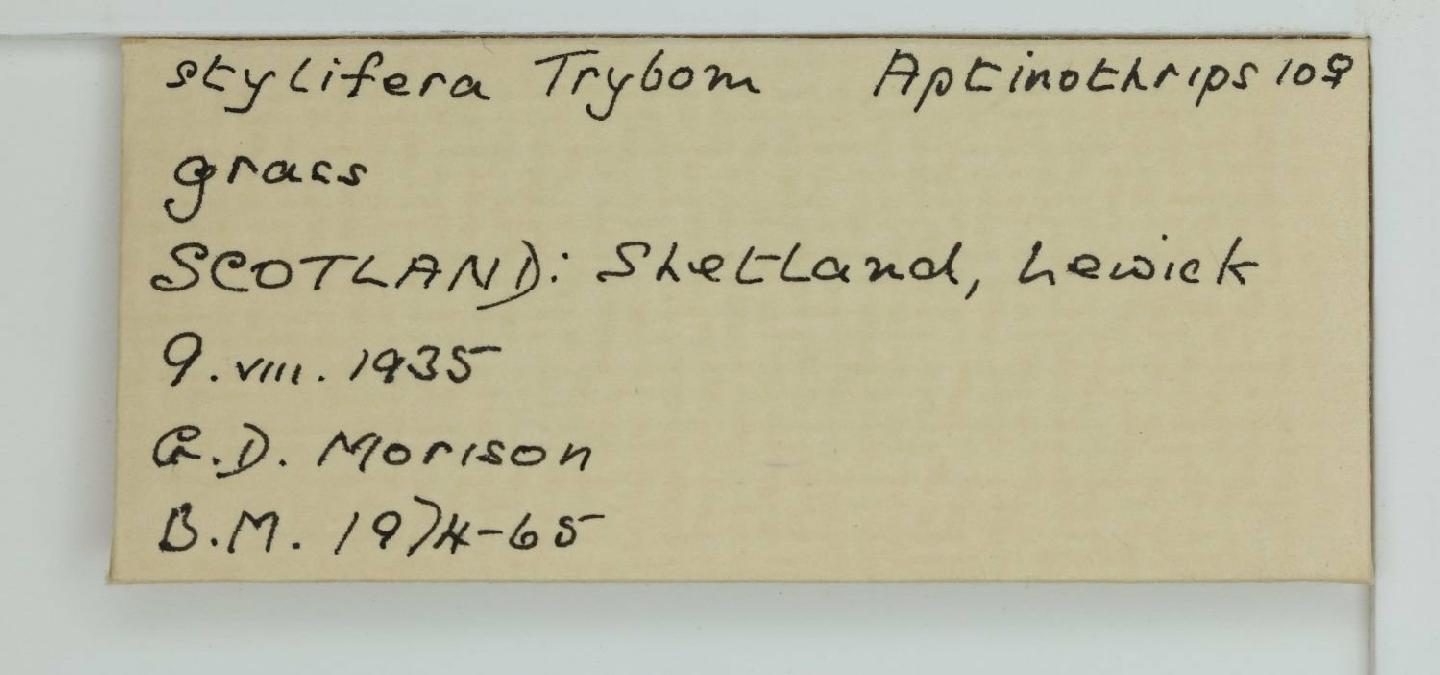 stylifera Trybom Aptinothrips 10♀
grass
SCOTLAND: Shetland, Lewick
9.viii.1935
G.D. Morison
B.M. 1974-65